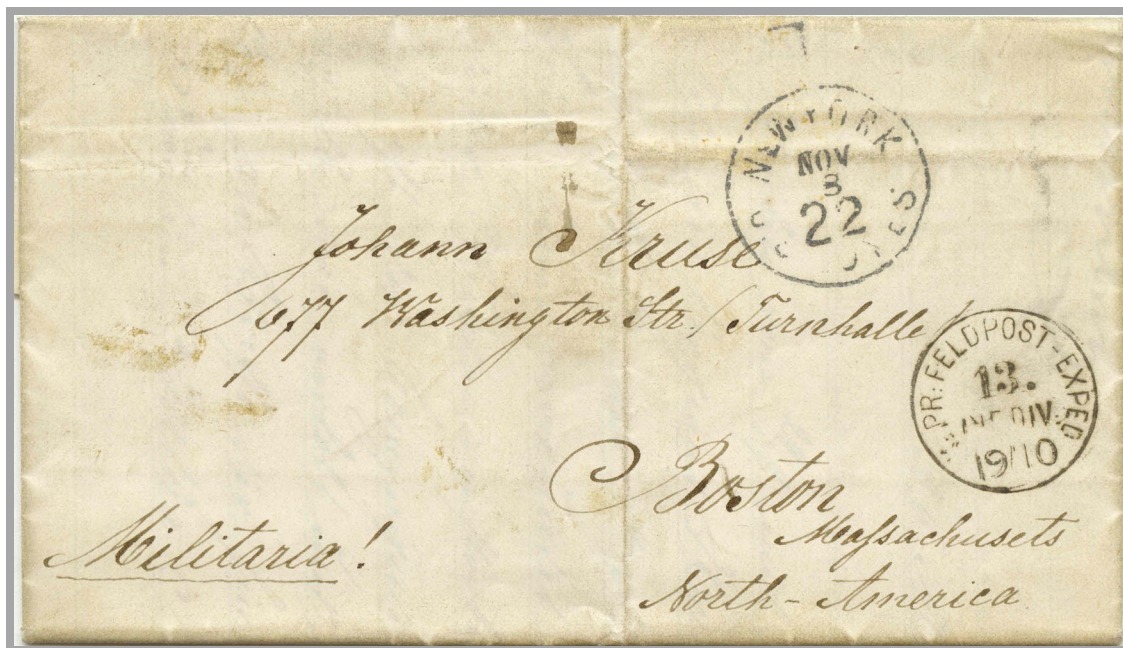 NEW YORK
NOV
3
22
U.S. NOTES
Johann Kruse
677 Washington Str. (Turnhalle)
PR: FELDPOST-EXPED
13.
INF. DIV.
19/10
Boston
Massachusets
North-America
Militaria!